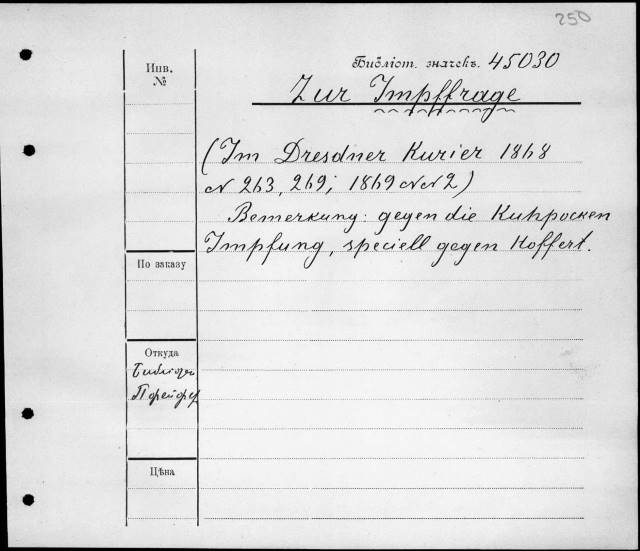 250
Инв.
№
Библіот. значекъ. 45030
Zur Impffrage
(Im Dresdner Kurier 1868
N 263, 269; 1869 NN 2)
Bemerkung: gegen die Kuhpocken
Impfung, speciell gegen Hoffert.
По заказу
Откуда
Пфейфер
Цѣна